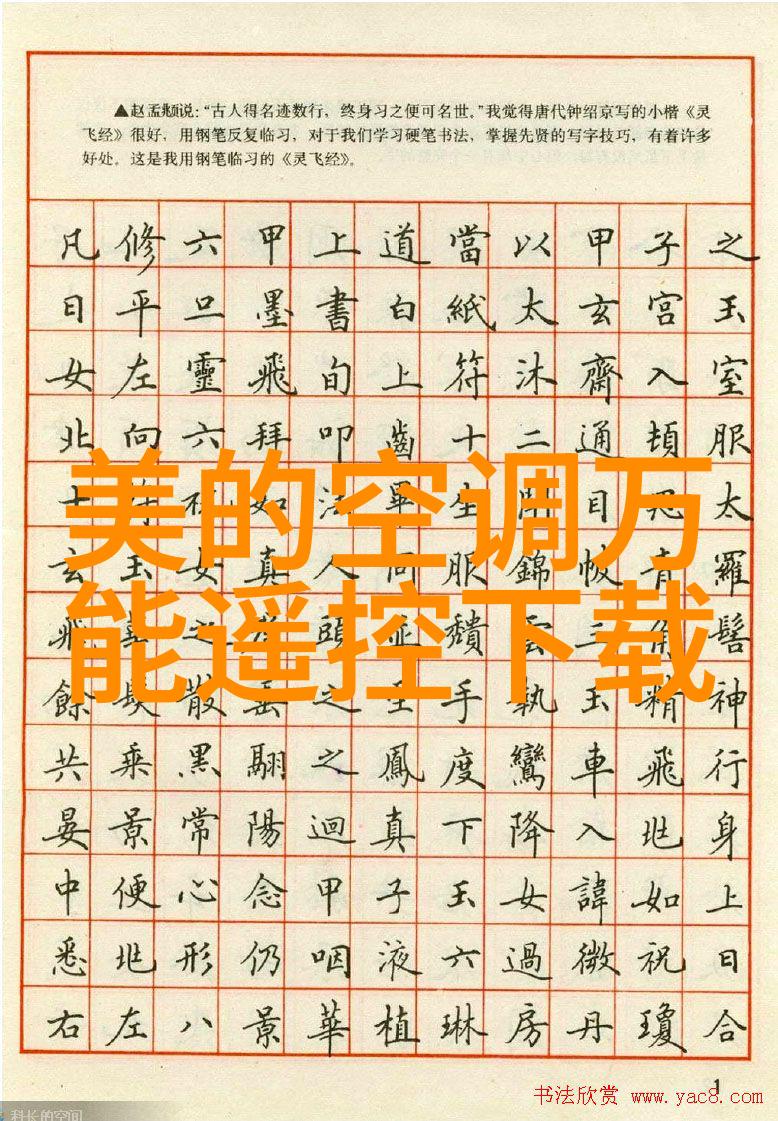 ▲赵孟頫说：“古人得名迹数行，终身习之便可名世。”我觉得唐代钟绍京写的小楷《灵
飞经》很好，用钢笔反复临习，对于我们学习硬笔书法，掌握先贤的写字技巧，有着许多
好处。这是我用钢笔临习的《灵飞经》。
凡修六甲上道當以甲子之
日平旦墨書白紙太玄宮玉
女左靈飛旬上符沐齋入室
北向六拜叩齒十二通頓服
十符祝如法畢生閉目思太
美的空调万
玄玉女真人同服錦帔青羅
能遥控下载
飛之頭並頹雲三角髻
餘髮散垂之至手執玉精神
共乘黑翮之鳳度鸞車飛行
晏景常陽迴真下降入北身
中便心念甲子玉女諱如上
悉北形仍咽液六過微祝日
右左八景華植琳房丹瓊合
1
书法欣赏 www.yac8.com
科长的空间